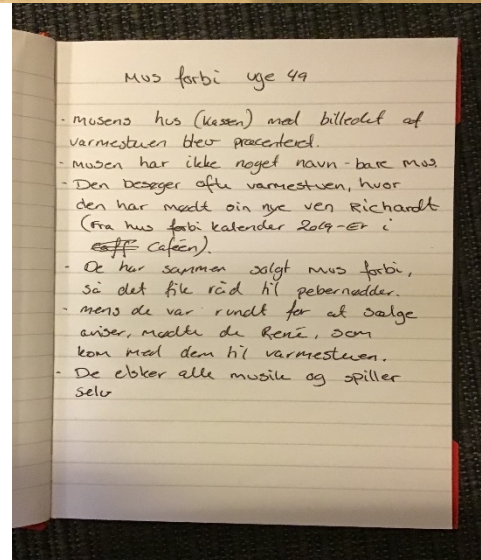 Mus forbi uge 49
- musens hus (kassen) med billedet af
varmestuen blev præcenteret.
- musen har ikke noget navn - bare mus.
- Den besøger ofte varmestuen, hvor
den har mødt sin nye ven Richardt
(Fra hus forbi kalender 2019 - Er i
caff Cafeén).
- De har sammen solgt mus forbi,
så det fik råd til pebernødder.
- mens de var rundt for at sælge
aviser, mødte de René, som
kom med dem til varmestuen.
- De elsker alle musik og spiller
selv